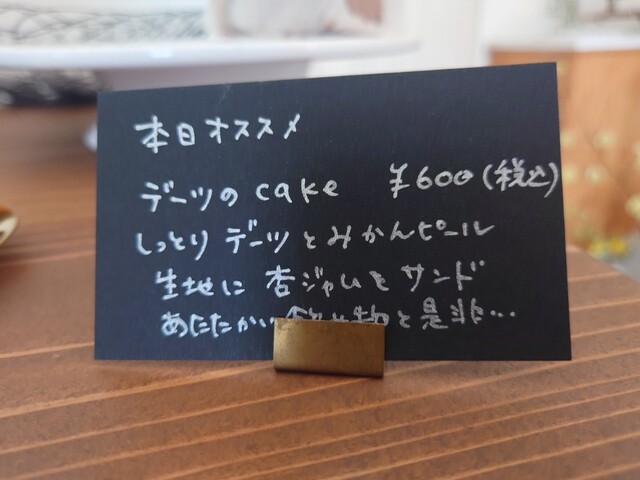 本日オススメ
デーツのcake ¥600(税込)
しっとりデーツとみかんピール
生地に杏ジャムをサンド
あたたかい飲み物と是非…